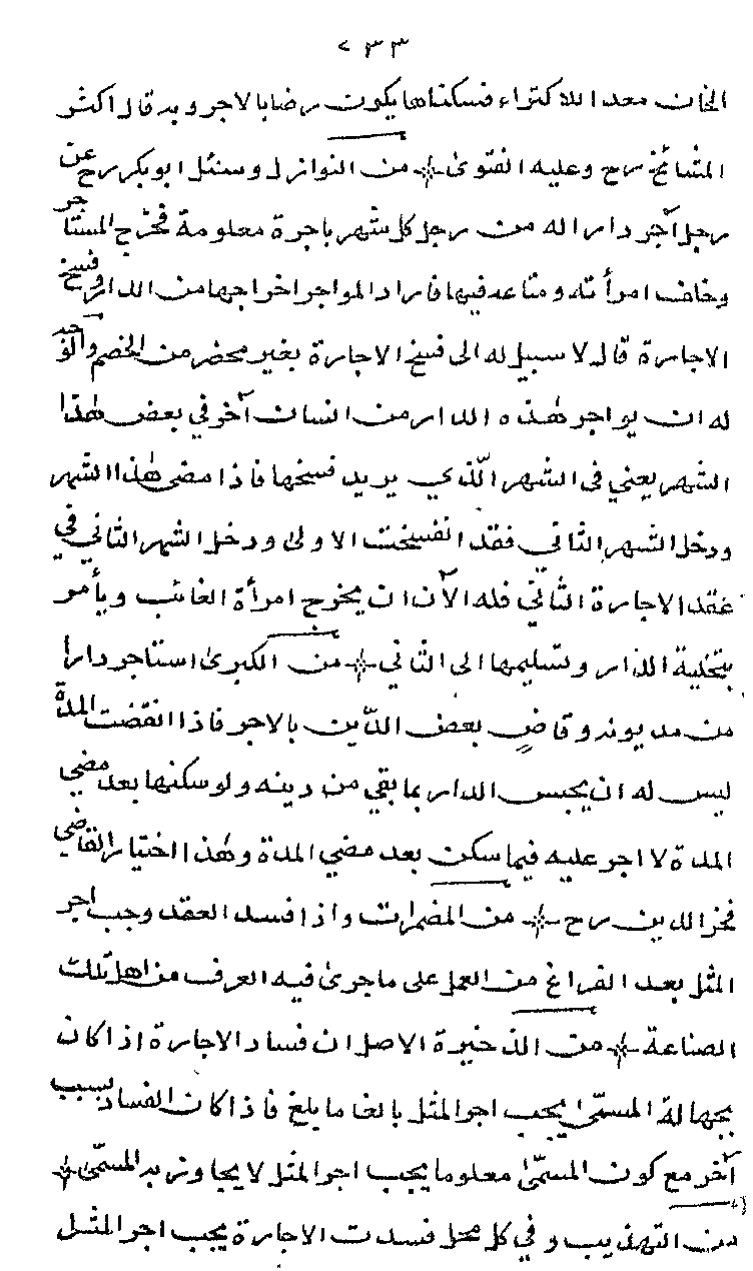 ٧٣٣
الخان معد اللاكتراء فسكناها يكون رضا بالاجر وبه قال اكثر
المشائخ رح وعليه الفتوى من النوازل وسئل ابوبكر رح عن
رجل آجر دارا له من رجل كل شهر باجرة معلومة فخرج المستاجر
وخلف امرأته ومتاعه فيها فاراد المواجر اخراجها من الدار وفسخ
الاجارة قال لا سبيل له الى فسخ الاجارة بغير محضر من الخصم والوجه
له ان يواجر هذه الدار من انسان آخر في بعض هذا
الشهر يعني فى الشهر الّذي يريد فسخها فاذا مضى هذا الشهر
ودخل الشهر الثاني فقد انفسخت الاولى ودخل الشهر الثاني في
عقد الاجارة الثاني فله الآن ان يخرج امرأة الغائب ويأمر
بتخلية الدار وتسليمها الى الثاني من الكبرى استاجر دارا
من مديونه وقاض بعض الدّين بالاجر فاذا انقضت المدة
ليس له ان يحبس الدار بما بقي من دينه ولو سكنها بعد مضي
المدة لا اجر عليه فيما سكن بعد مضي المدة وهذا اختيار القاضي
فخر الدين رح من المضمرات واذا فسد العقد وجب اجر
المثل بعد الفراغ من العمل على ما جرى فيه العرف من اهل تلك
الصناعة من الذخيرة الاصل ان فساد الاجارة اذا كان
بجهالة المسمّى يجب اجر المثل بالغا ما بلغ فاذا كان الفساد بسبب
آخر مع كون المسمّى معلوما يجب اجر المثل لا يجاوز به المسمّى
من التهذيب وفي كل محل فسدت الاجارة يجب اجر المثل